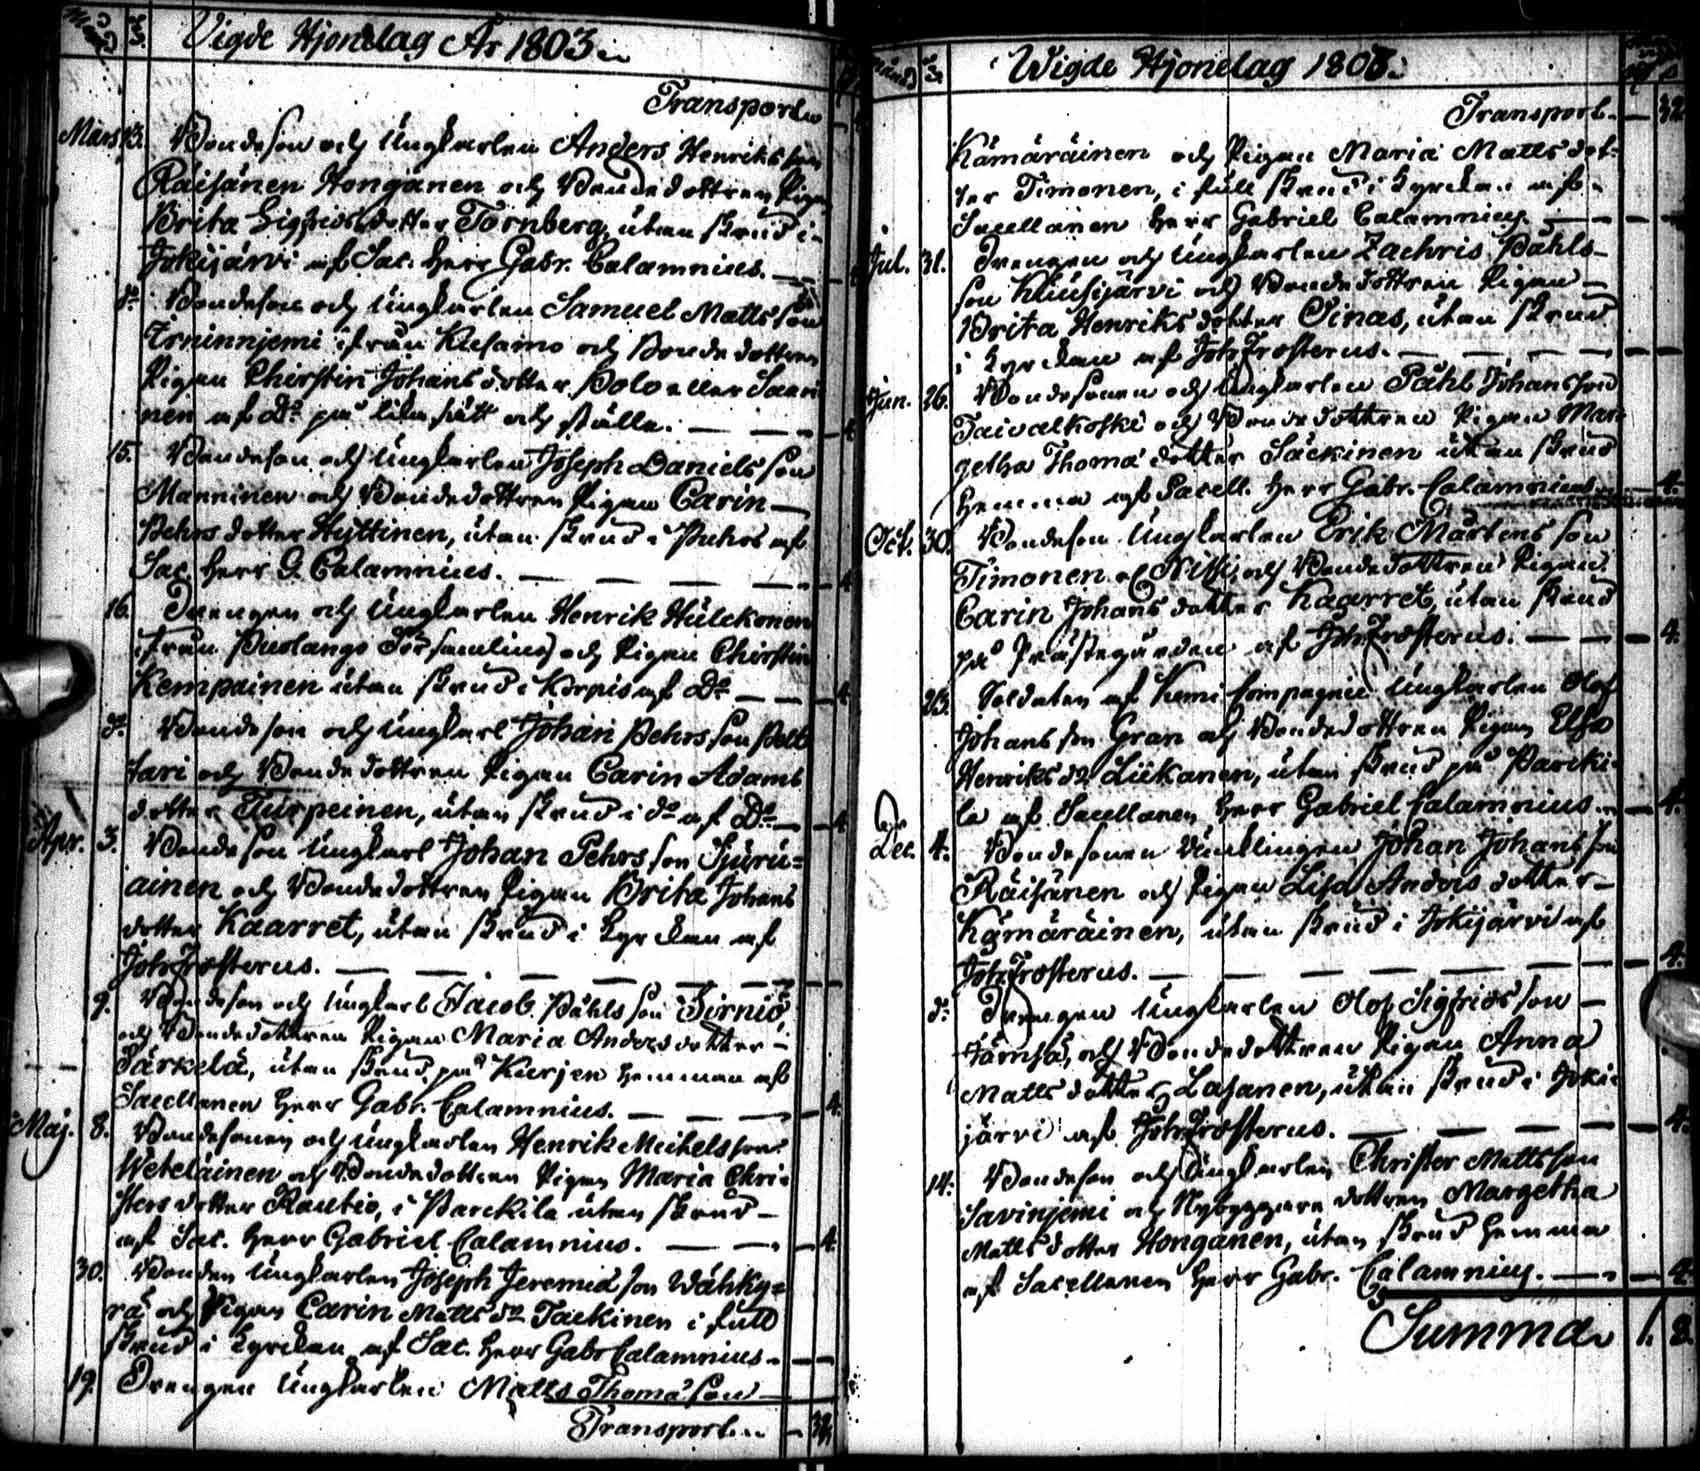 Månad
Vigde Hjonelag År 1803.
Transport
Mars 13. Bondeson och Ungkarlen Anders Henriksson
Räisänen Honganen och Bondedottren Pigan
Brita Sigfridsdotter Törnberg, utan skrud i
Jokijärvi af Sac. Herr Gabr. Calamnius.
do Bondeson och Ungkarlen Samuel Mattsson
Irninnjemi ifrån Kusamo och Bondedottren
Pigan Chirstin Johansdotter Polo eller Saari
nen af Do på lika sätt och ställe. 4
15. Bondeson och Ungkarlen Joseph Danielsson
Manninen och Bondedottren Pigan Carin
Pehrsdotter Hyttinen, utan skrud i Puhos af
Sac. Herr G. Calamnius. 4
16. Drengen och Ungkarlen Henrik Hulckonen
ifrån Pudlango Församling och Pigan Chirstin
Kempainen utan skrud i Korpis af Do 4
do Bondeson och Ungkarl Johan Pehrsson Pelt
tari och Bondedottren Pigan Carin Adams
dotter Turpeinen, utan skrud i do af Do 4
Apr. 3. Bondeson Ungkarl Johan Pehrsson Sjuru=
ainen och Bondedottren Pigan Brita Johans
dotter Kaarret, utan skrud i Kyrckan af
Joh. Frosterus.
9. Bondeson och Ungkarl Jacob Påhlsson Sirniö,
och Bondedottren Pigan Maria Andersdotter
Särkelä, utan skrud på Kurjen Hemman af
Sacellanen Herr Gabr. Calamnius. 4.
Maj. 8. Bondesonen och Ungkarlen Henrik Michelsson
Weteläinen och Bondedottren Pigan Maria Chri=
stersdotter Rautio, i Parckila utan skrud
af Sac. Herr Gabriel Calamnius. 4.
30. Bonden Ungkarlen Joseph Jeremiæson Wähky=
rä och Pigan Carin Mattsdr Tackinen i full
skrud i Kyrckan af Sac. Herr Gabr Calamnius.
19. Drengen Ungkarlen Matts Thomæson
Transport
Månad
Wigde Hjonelag 1803.
Transport. 32.
Kämäräinen och Pigan Maria Mattsdot=
ter Timonen, i full skrud i Kyrckan af
Sacellanen Herr Gabriel Calamnius.
Jul. 31. Drengen och Ungkarlen Zachris Påhls=
son Kiiusijärvi och Bondedottren Pigan
Brita Henriksdotter Oinas, utan skrud
i Kyrckan af Joh. Frosterus.
Jun. 26. Bondesonen och Ungkarlen Påhl Johansson
Taivalkoski och Bondedottren Pigan Mar
getha Thomædotter Säckinen utan skrud
hemma af Sacell. Herr Gabr. Calamnius. 4.
Oct. 30. Bondeson Ungkarlen Erik Mårtensson
Timonen el. Nissi, och Bondedottren Pigan
Carin Johansdotter Kaarret, utan skrud
på Prästegården af Joh. Frosterus. 4.
23. Soldaten af Kemi Compagnie Ungkarlen Olof
Johansson Gran och Bondedottren Pigan Elsa
Henriksdr Liikanen, utan skrud på Parcki=
la af Sacellanen Herr Gabriel Calamnius. 4.
Dec. 4. Bondesonen Enklingen Johan Johansson
Räisänen och Pigan Lisa Andersdotter
Kämäräinen, utan skrud i Jokijärvi af
Joh. Frosterus. 4.
do Drengen Ungkarlen Olof Sigfridsson
Jämsä, och Bondedottren Pigan Anna
Mattsdotter Lasanen, utan skrud i Joki=
järvi af Joh. Frosterus. 4.
14. Bondeson och Ungkarlen Christer Mattsson
Savinjemi och Nybyggaredottren Margetha
Mattsdotter Honganen, utan skrud hemma
af Sacellanen Herr Gabr. Calamnius. 4
Summa 1. 8.